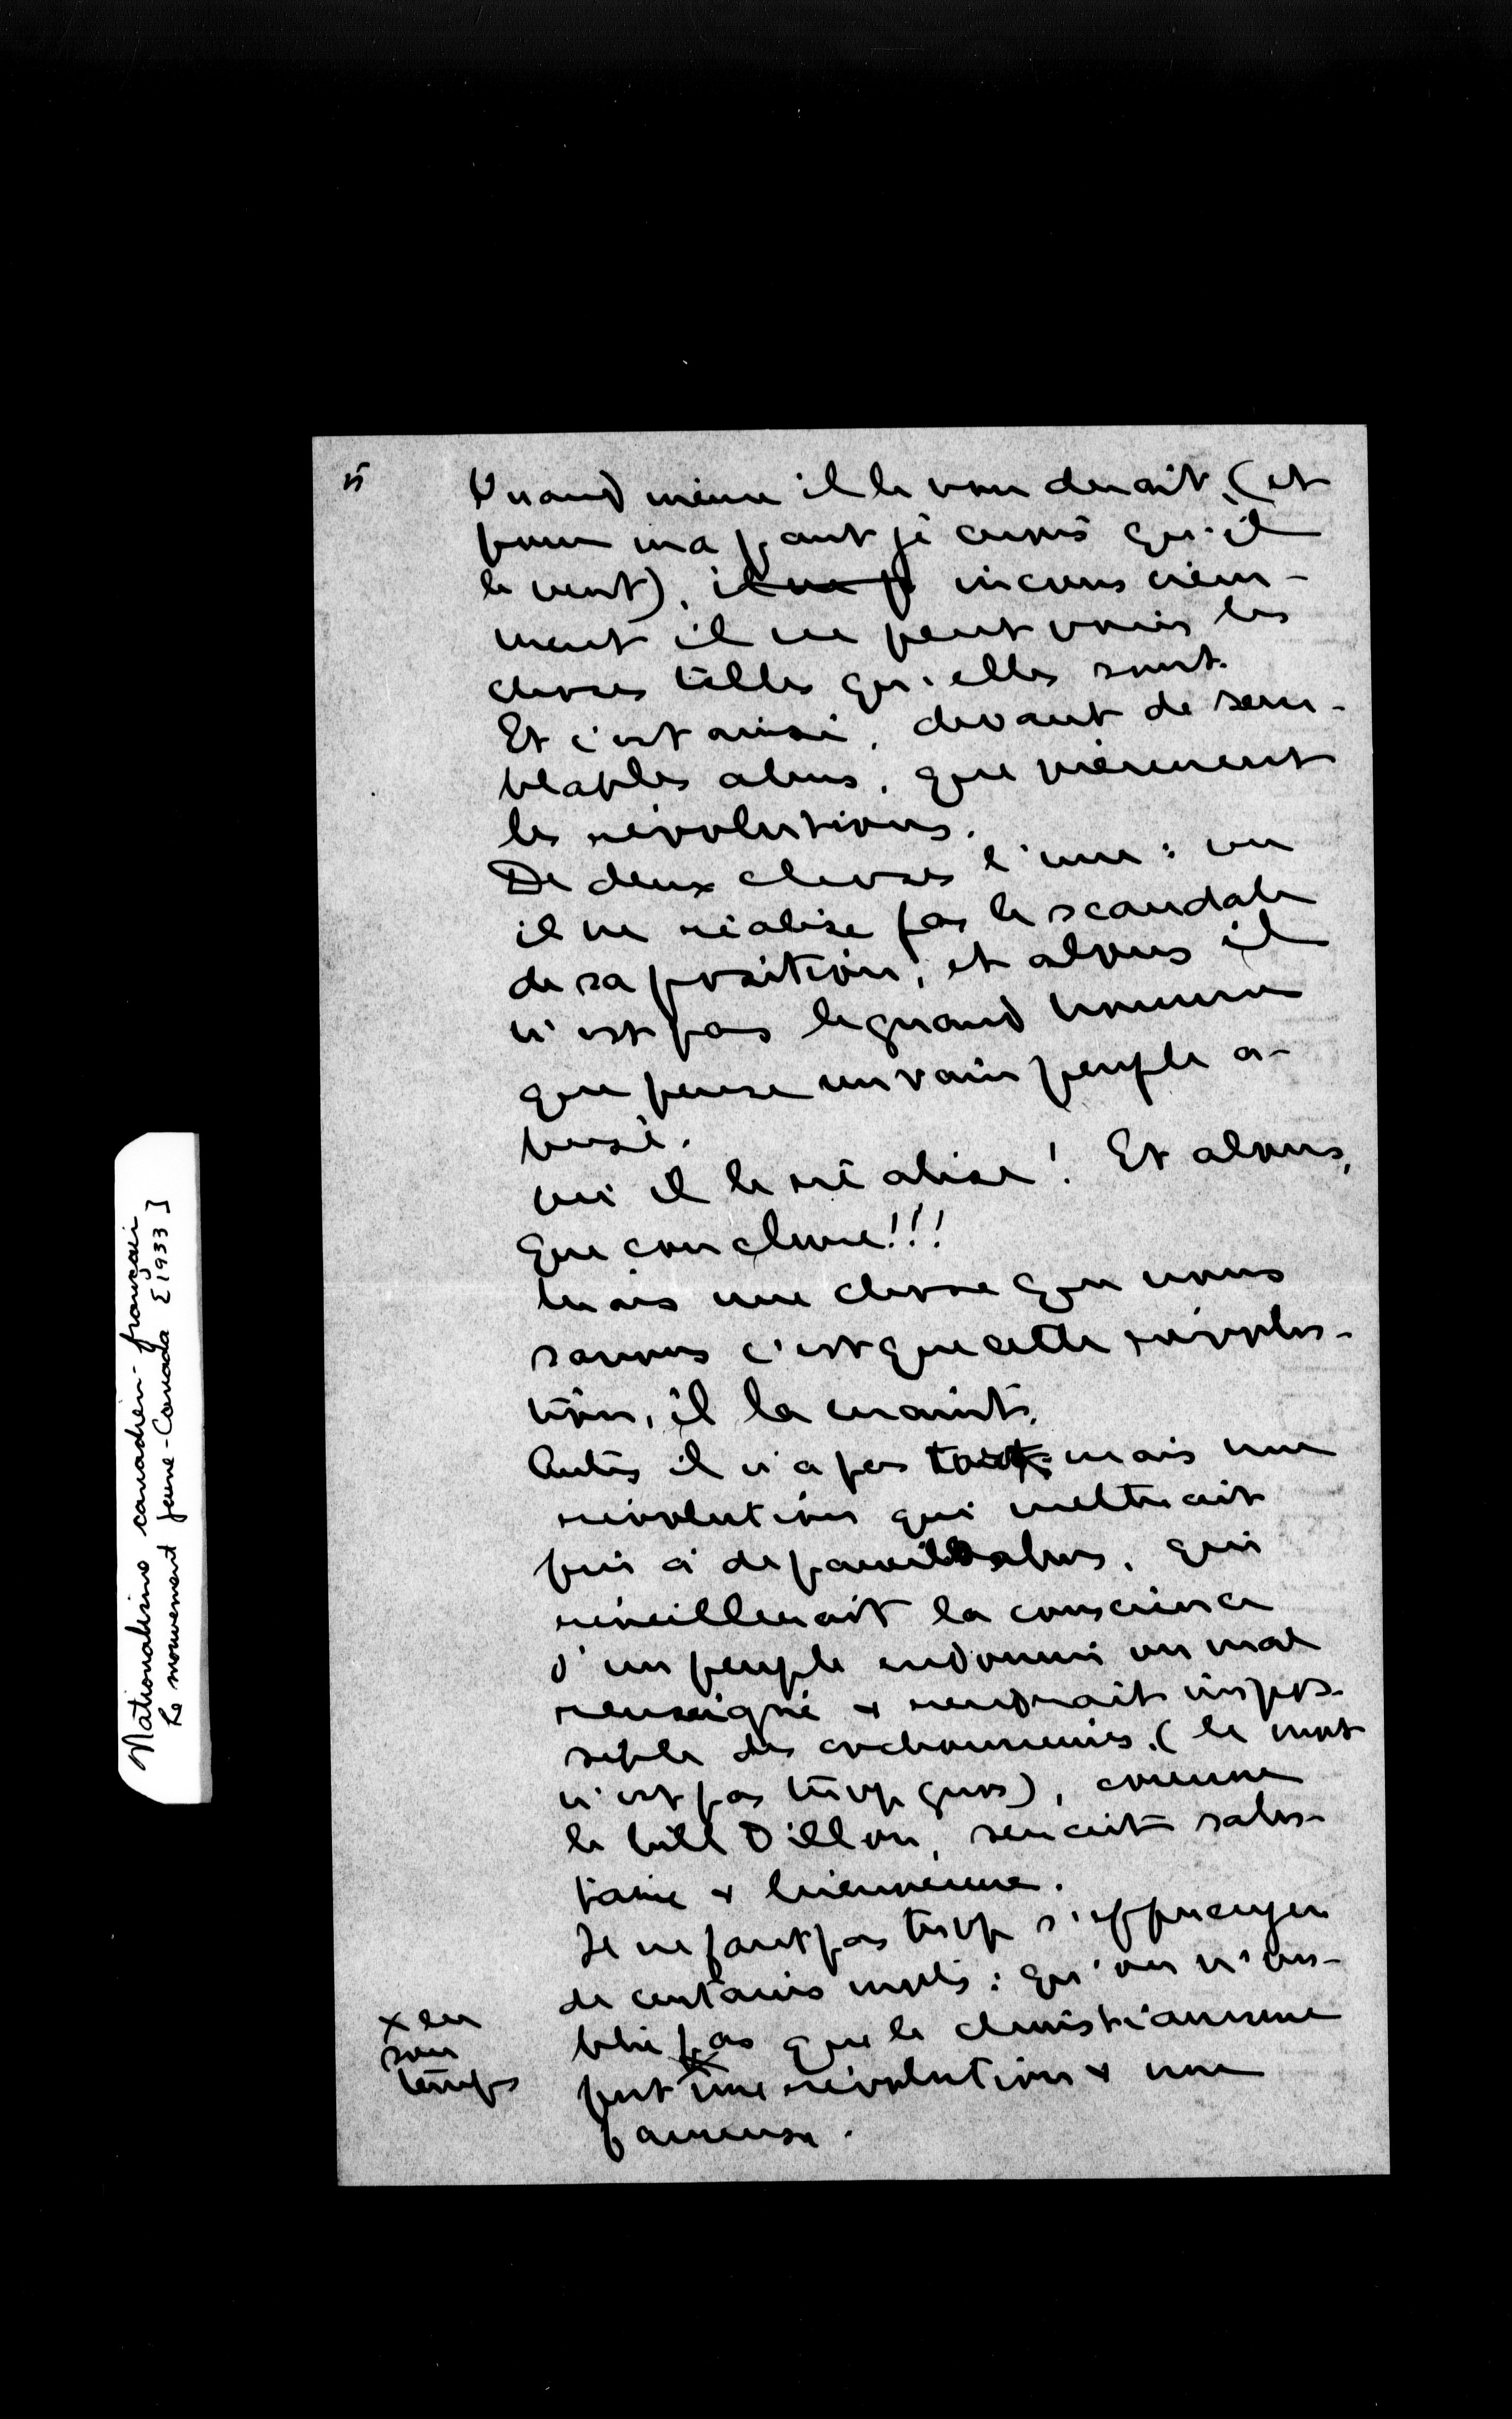 5
Quand même il le voudrait, (et
pour ma part je crois qu'il
le veut), il ne p inconsciem-
ment il ne peut voir les
choses telles qu'elles sont.
Et c'est ainsi, devant de sem-
blables abus, que viennent
les révolutions.
De deux choses l'une : ou
il ne réalise pas le scandale
de sa position, et alors il
n'est pas le grand homme
que pense un vain peuple a-
busé.
ou il le réalise! Et alors,
que conclure!!!
Mais une chose que nous
savons c'est que cette révolu-
tion, il la craint.
il n'a pas tort mais une
révolution qui mettrait
fin à de pareils abus, qui
réveillerait la conscience
d'un peuple endormi ou mal
renseigné & rendrait impos-
sible des cochonneries, (le mot
n'est pas trop gros), comme
le bill Dillon, serait salu-
taire & bienvenue.
Il ne faut pas trop s'effrayer
de certains mots : qu'on n'ou-
blie pas que le christianisme
fut x une révolution & une
fameuse.
x en
son
temps
Nationalisme canadien-français
Le mouvement Jeune-Canada [1933]